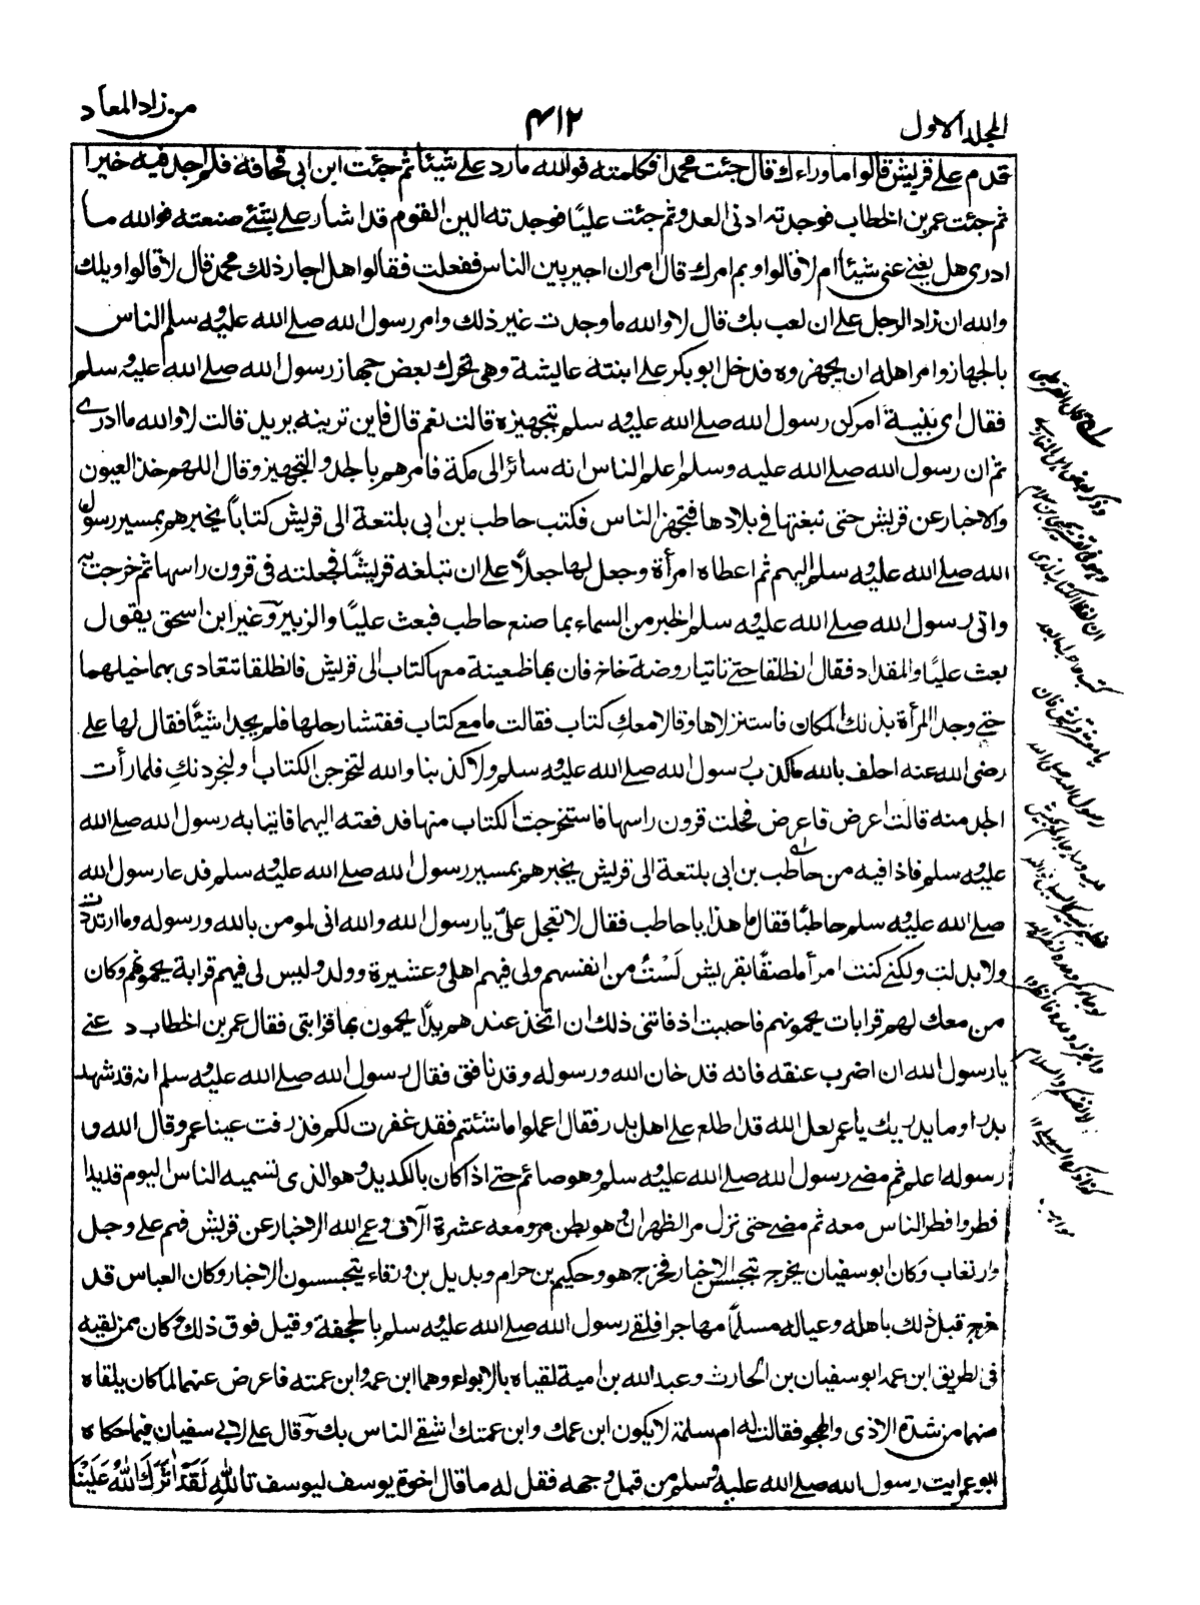 المجلد الاول
٤١٢
من زاد المعاد
قدم على قريش قالوا ما وراءك قال جئت محمدا فكلمته فوالله ما رد على شيئا ثم جئت ابن ابى قحافة فلم اجد فيه خيرا
ثم جئت عمر بن الخطاب فوجدته ادنى العدو ثم جئت عليًا فوجدته الين القوم قد اشار على بشئ صنعته فوالله ما
ادرى هل يغنى عنى شيئا ام لا قالوا وبم امرك قال امر ان اجير بين الناس ففعلت فقالوا هل اجار ذلك محمد قال لا قالوا ويلك
والله ان زاد الرجل على ان لعب بك قال لا والله ما وجدت غير ذلك وامر رسول الله صلى الله عليه وسلم الناس
بالجهاز وامر اهله ان يجهزوه فدخل ابو بكر على ابنته عايشة وهى تحرك بعض جهاز رسول الله صلى الله عليه وسلم
فقال اى بنية امركن رسول الله صلى الله عليه وسلم بتجهيزه قالت نعم قال فاين ترينه يريد قالت لا والله ما ادرى
ثم ان رسول الله صلى الله عليه وسلم اعلم الناس انه سائر الى مكة فامرهم بالجد والتجهيز وقال اللهم خذ العيون
والاخبار عن قريش حتى نبغتها فى بلادها فتجهز الناس فكتب حاطب بن ابى بلتعة الى قريش كتاباً يخبرهم بمسير رسول
الله صلى الله عليه وسلم اليهم ثم اعطاه امرأة وجعل لها جعلاً على ان تبلغه قريشًا فجعلته فى قرون راسها ثم خرجت به
واتى رسول الله صلى الله عليه وسلم الخبر من السماء بما صنع حاطب فبعث عليًا والزبير وغير ابن اسحق يقول
بعث عليًا والمقداد فقال انطلقا حتى تاتيا روضة خاخ فان بها ظعينة معها كتاب الى قريش فانطلقا تتعادى بهما خيلهما
حتى وجد المرأة بذلك المكان فاستنزلاها وقالا معكِ كتاب فقالت ما معى كتاب ففتشا رحلها فلم يجدا شيئًا فقال لها على
رضى الله عنه احلف بالله ما كذب رسول الله صلى الله عليه وسلم ولا كذبنا والله لتخرجن الكتاب او لنجردنكِ فلما رأت
الجد منه قالت اعرض فاعرض فحلت قرون راسها فاستخرجت الكتاب منها فدفعته اليهما فاتيا به رسول الله صلى الله
عليه وسلم فاذا فيه من حاطب بن ابى بلتعة الى قريش يخبرهم بمسير رسول الله صلى الله عليه وسلم فدعا رسول الله
صلى الله عليه وسلم حاطبًا فقال ما هذا يا حاطب فقال لا تعجل علىّ يا رسول الله والله انى لمومن بالله ورسوله وما ارتددت
ولا بدلت ولكنى كنت امرأ ملصقًا بقريش لَسْتُ من انفسهم ولى فيهم اهل وعشيرة وولد وليس لى فيهم قرابة يحمونهم وكان
من معك لهم قرابات يحمونهم فاحببت اذ فاتنى ذلك ان اتخذ عندهم يدًا يحمون بها قرابتى فقال عمر بن الخطاب دعنى
يا رسول الله ان اضرب عنقه فانه قد خان الله ورسوله وقد نافق فقال رسول الله صلى الله عليه وسلم انه قد شهد
بدرا وما يدريك يا عمر لعل الله قد اطلع على اهل بدر فقال اعملوا ما شئتم فقد غفرت لكم فذرفت عينا عمر وقال الله و
رسوله اعلم ثم مضى رسول الله صلى الله عليه وسلم وهو صائم حتى اذا كان بالكديد وهو الذى تسميه الناس اليوم قديدا
فطر وافطر الناس معه ثم مضى حتى نزل مر الظهران وهو بطن مر ومعه عشرة آلاف وعمى الله الاخبار عن قريش فهم على وجل
وارتقاب وكان ابو سفيان يخرج يتجسس الاخبار فخرج هو وحكيم بن حزام وبديل بن ورقاء يتجسسون الاخبار وكان العباس قد
خرج قبل ذلك باهله وعياله مسلمًا مهاجرا فلقى رسول الله صلى الله عليه وسلم بالجحفة وقيل فوق ذلك وكان ممن لقيه
فى الطريق ابن عمه ابو سفيان بن الحارث وعبد الله بن امية لقياه بالابواء وهما ابن عمه وابن عمته فاعرض عنهما لما كان يلقاه
منهما من شدة الاذى والهجو فقالت له ام سلمة لا يكون ابن عمك وابن عمتك اشقى الناس بك وقال على لابى سفيان فيما حكاه
ابو عمر ايت رسول الله صلى الله عليه وسلم من قبل وجهه فقل له ما قال اخوة يوسف ليوسف تاللهِ لَقَدْ اٰثَرَكَ اللّٰهُ عَلَيْنَا